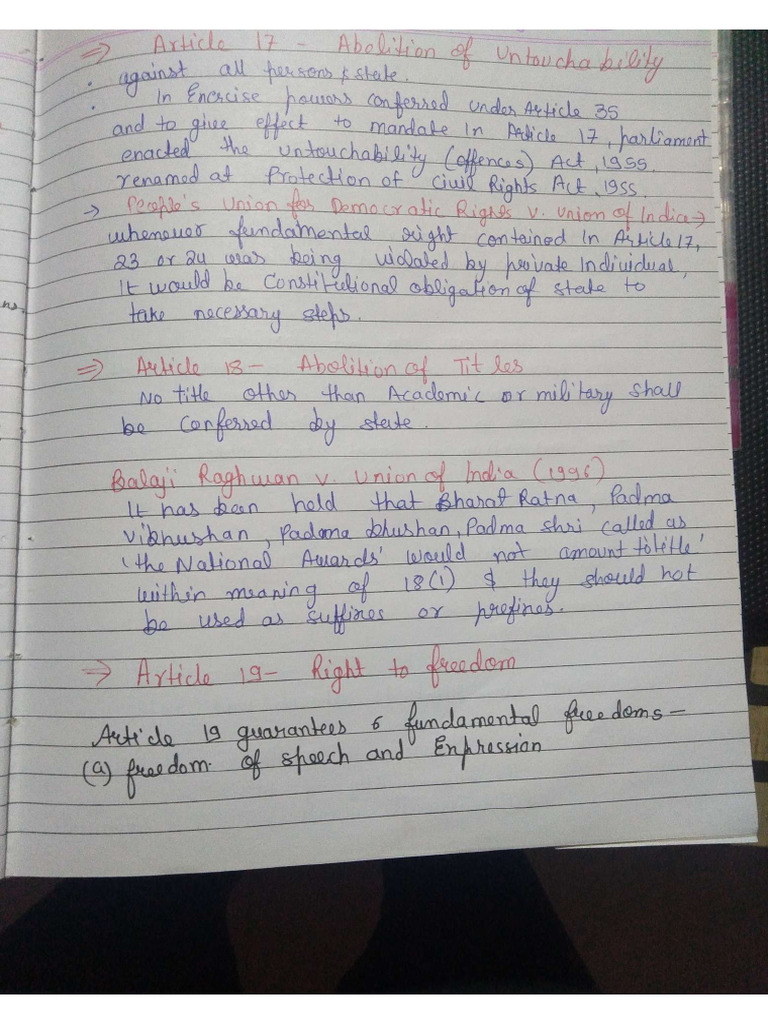 ⇒ Article 17 - Abolition of Untouchability
• against all persons & state.
• In Exercise powers conferred under Article 35
and to give effect to mandate in Article 17, parliament
enacted the untouchability (offences) Act, 1955
renamed at Protection of Civil Rights Act, 1955
→ People's Union for Democratic Rights v. Union of India →
whenever fundamental right contained in Article 17,
23 or 24 was being violated by private individual,
It would be Constitutional obligation of state to
take necessary steps.
⇒ Article 18 - Abolition of Titles
No title other than Academic or military shall
be conferred by state.
Balaji Raghwan v. Union of India (1996)
It has been held that Bharat Ratna, Padma
Vibhushan, Padma bhushan, Padma shri called as
'the National Awards' would not amount to 'title'
within meaning of 18(1) & they should not
be used as suffixes or prefixes.
⇒ Article 19 - Right to freedom
Article 19 guarantees 6 fundamental freedoms -
(a) freedom of speech and Expression